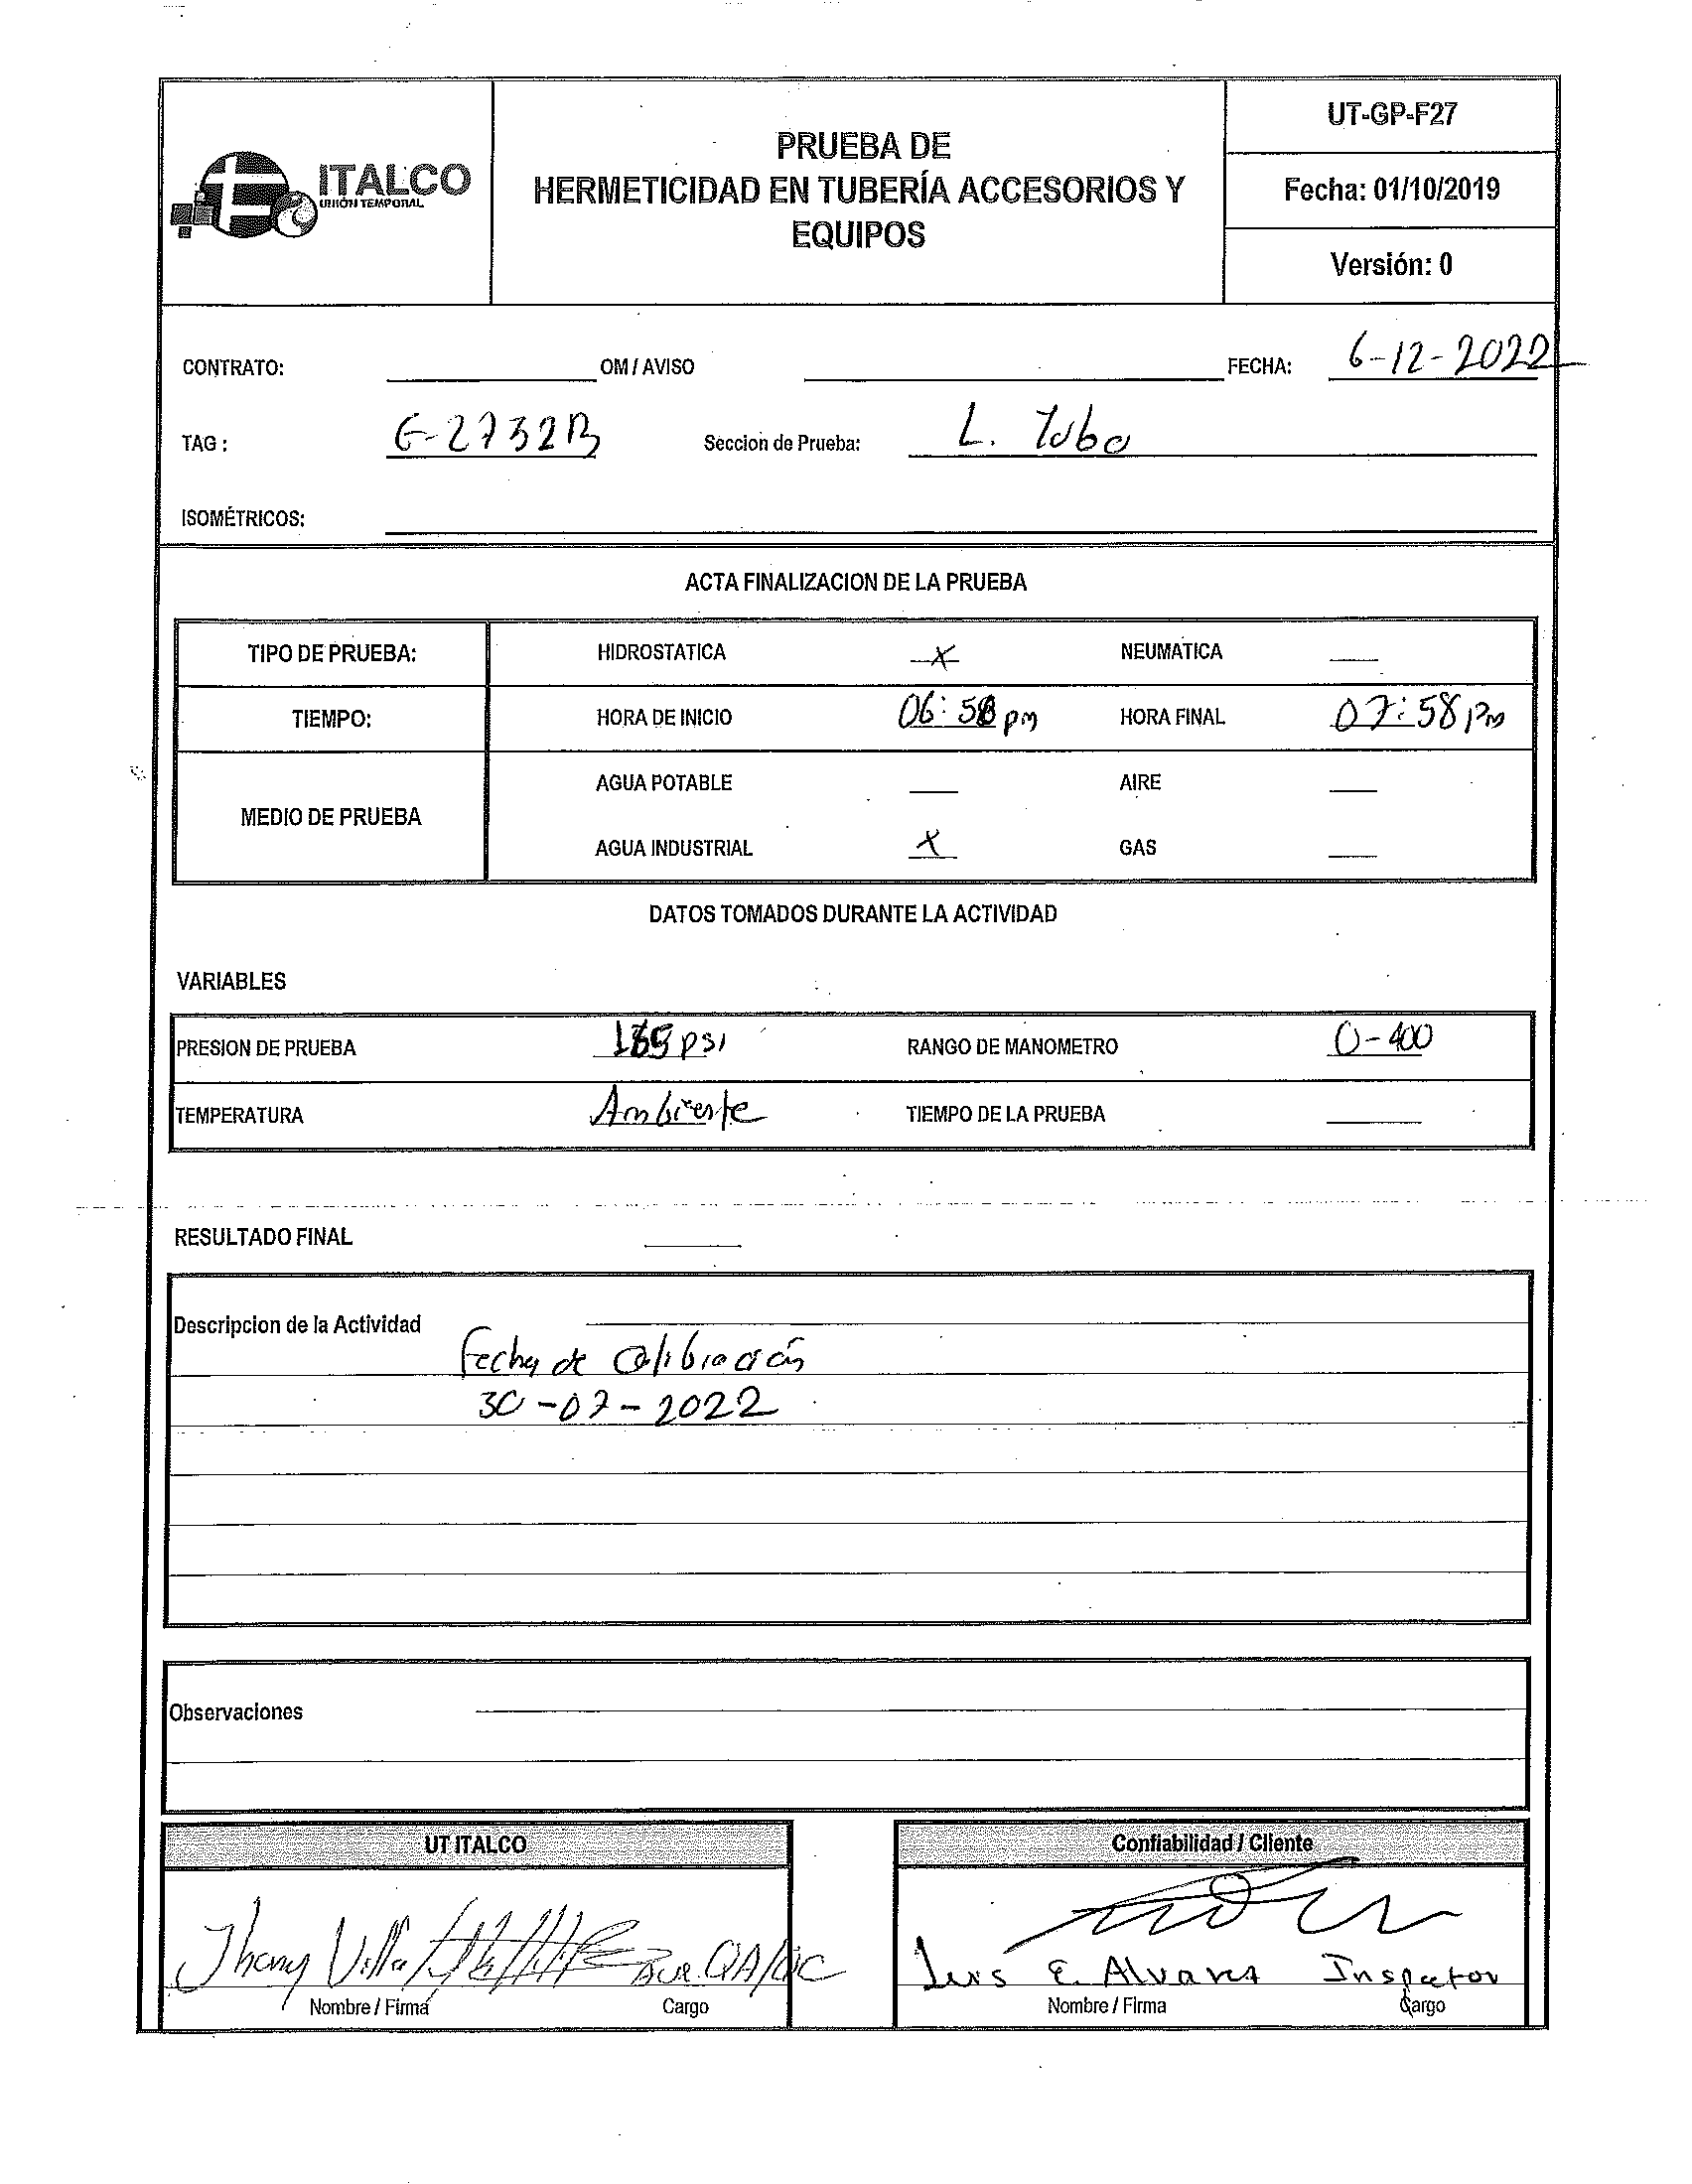 ITALCO
UNIÓN TEMPORAL
PRUEBA DE
HERMETICIDAD EN TUBERÍA ACCESORIOS Y
EQUIPOS
UT-GP-F27
Fecha: 01/10/2019
Versión: 0
CONTRATO: OM / AVISO FECHA: 6-12-2022
TAG : E-2732B Seccion de Prueba: L. Tubo
ISOMÉTRICOS:
ACTA FINALIZACION DE LA PRUEBA
TIPO DE PRUEBA: HIDROSTATICA X NEUMATICA
TIEMPO: HORA DE INICIO 06:58 pm HORA FINAL 07:58 pm
MEDIO DE PRUEBA
AGUA POTABLE AIRE
AGUA INDUSTRIAL X GAS
DATOS TOMADOS DURANTE LA ACTIVIDAD
VARIABLES
PRESION DE PRUEBA psi RANGO DE MANOMETRO 0-400
TEMPERATURA Ambiente TIEMPO DE LA PRUEBA
RESULTADO FINAL
Descripcion de la Actividad
Fecha de Calibración
30-07-2022
Observaciones
UT ITALCO
Jhony Villa QA/QC
Nombre / Firma Cargo
Confiabilidad / Cliente
Luis E. Alvarez Inspector
Nombre / Firma Cargo